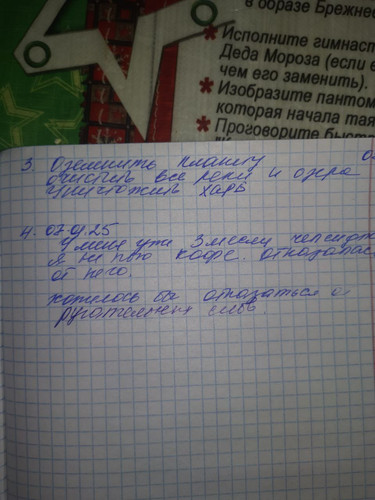 в образе Брежне
* Исполните гимнаст
Деда Мороза (если е
чем его заменить).
* Изобразите пантом
которая начала тая
* Проговорите быстр
3. Озеленить планету
очистить все реки и озера
уничтожив
4. 07.01.25
У меня уже 3 месяц
я не пью кофе. отказалас
от него.
хотелось бы отказаться о
ругательных слов.